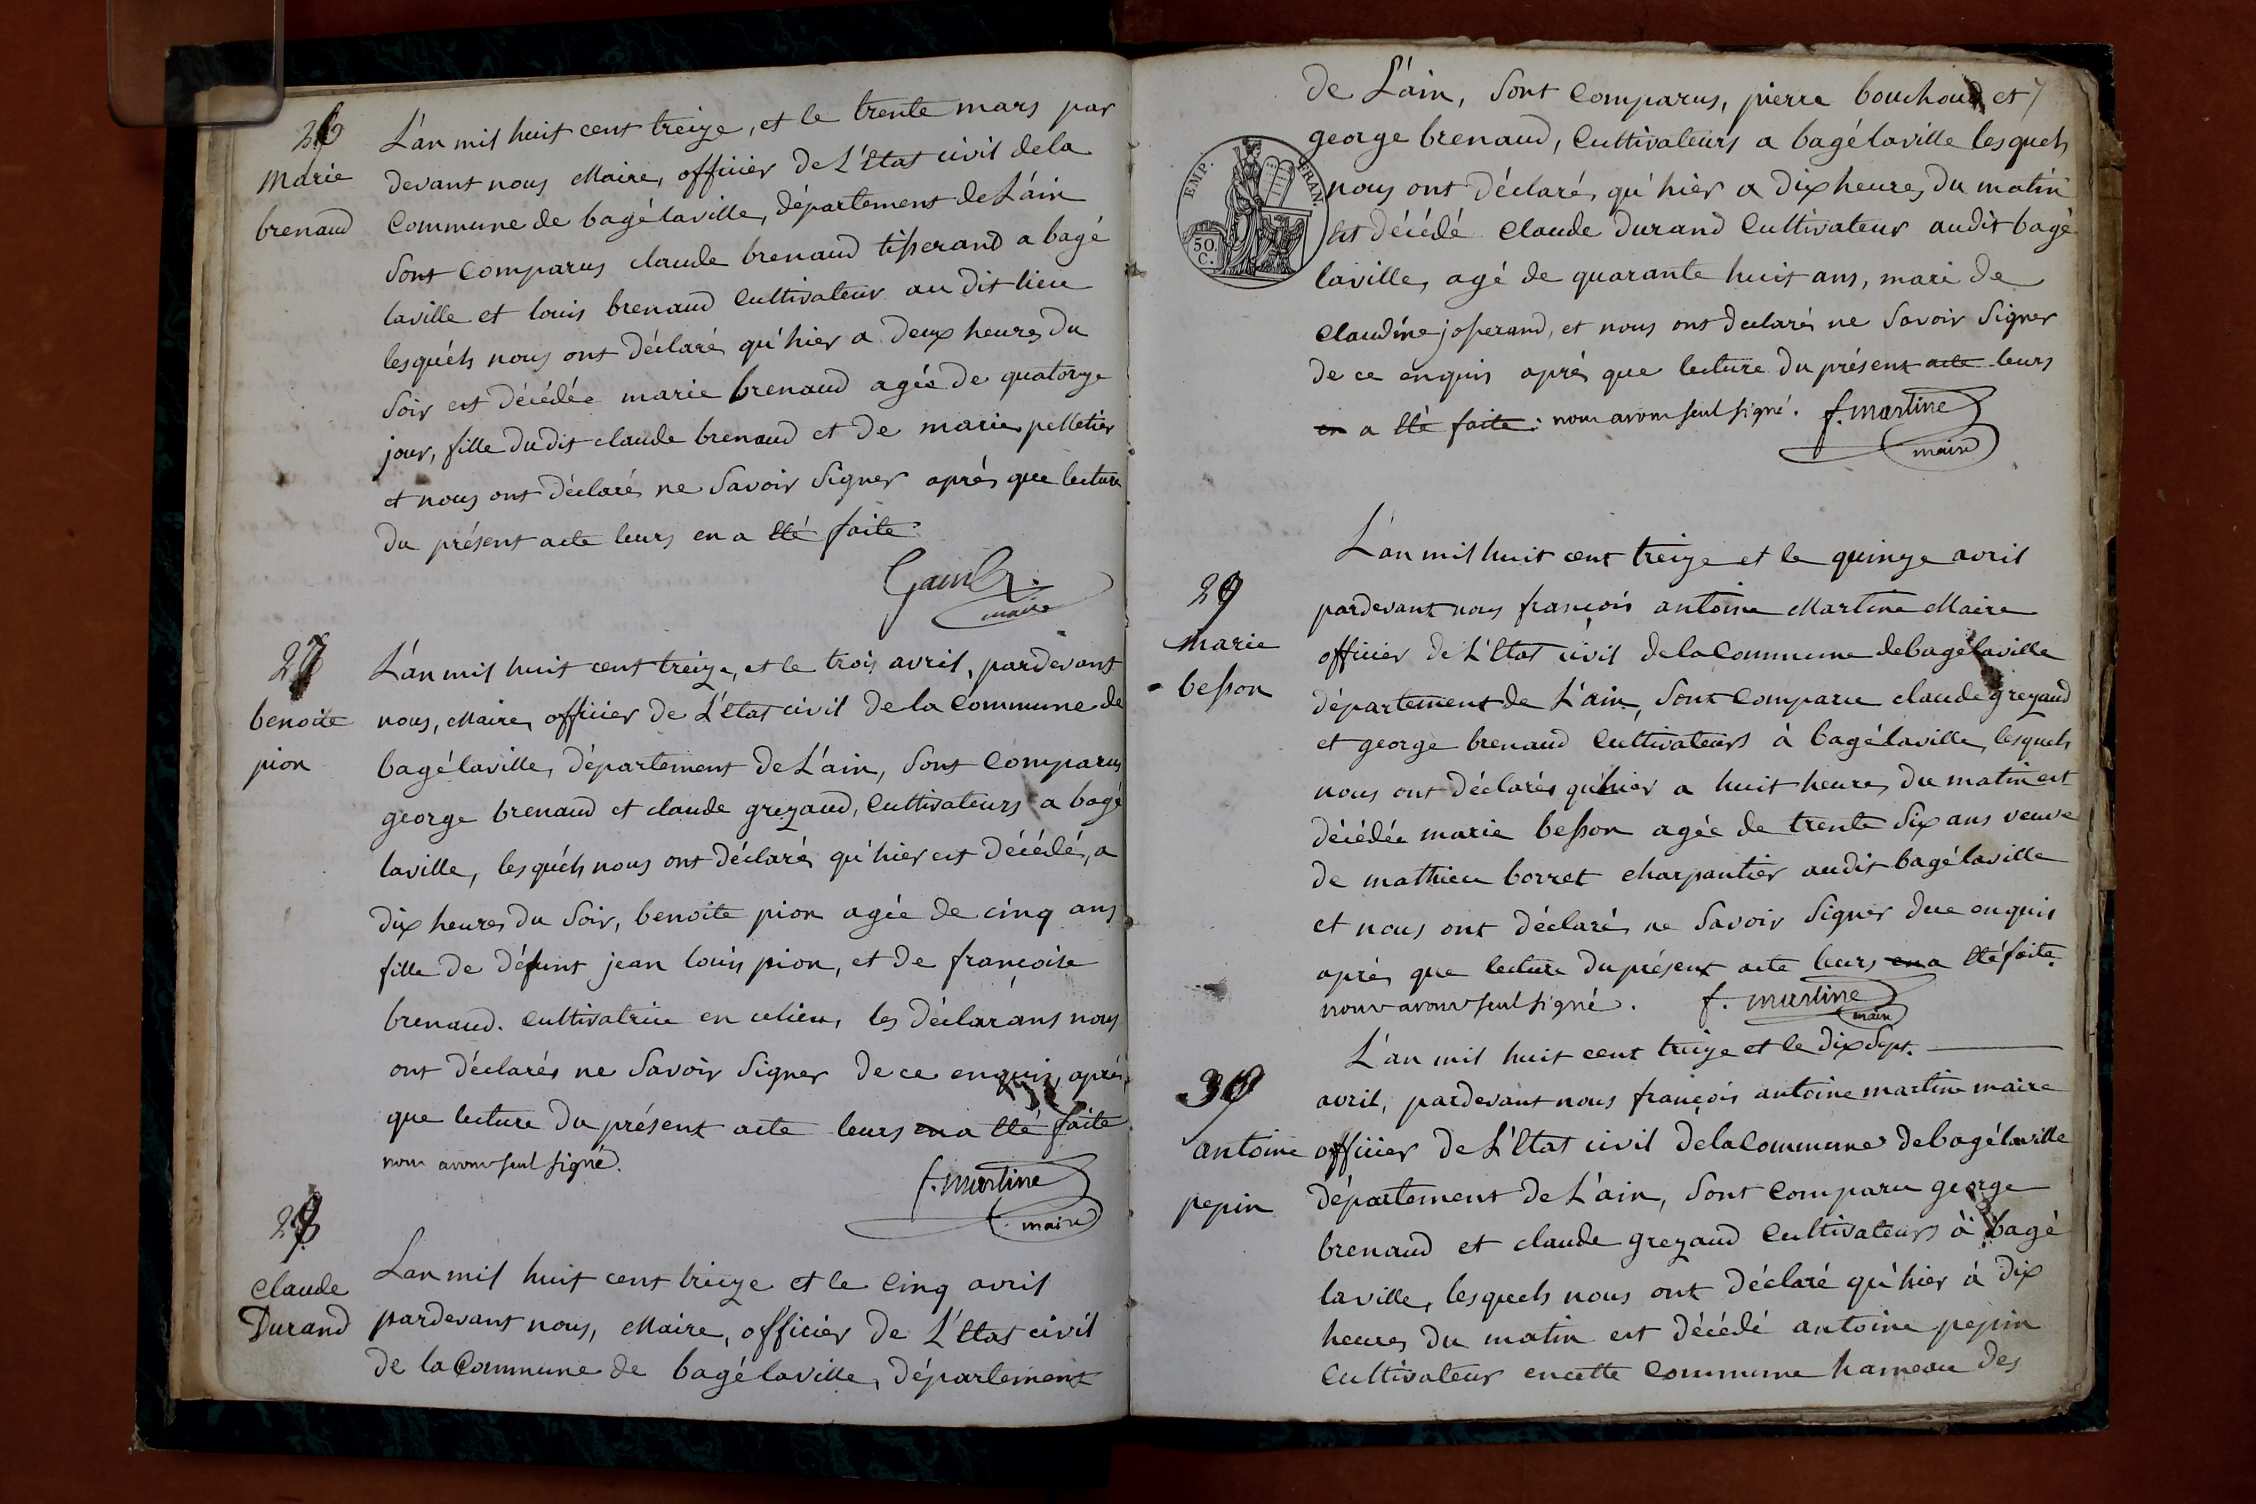 26
marie
brenaud
L'an mil huit cent treize, et le trente mars par
devant nous Maire, officier de L'Etat civil de la
Commune de bagé laville, département de L'ain
Sont Comparus claude brenaud tisserand a bagé
laville et louis brenaud Cultivateur au dit lieu
lesquéls nous ont déclaré qu'hier a deux heures du
Soir est décédée marie brenaud agée de quatorze
jour, fille dudit claude brenaud et de marie pelletier
et nous ont déclarés ne Savoir Signer aprés que lecture
du présent acte leurs en a Eté faite.
maire
27
benoite
pion
L'an mil huit cent treize, et le trois avril, pardevant
nous, Maire, officier de L'Etat civil de la Commune de
bagé laville, département de L'ain, Sont Comparus
george brenaud et claude greyaud, Cultivateurs a bagé
laville, lesquéls nous ont déclarés qu'hier est décédé, a
dix heures du Soir, benoite pion agée de cinq ans
fille de défunt jean louis pion, et de francoise
brenaud. Cultivatrice en celieu, les déclarans nous
ont déclarés ne Savoir Signer de ce enquis, aprés
que lecture du présent acte leurs en a Eté faite
nous avons seul signé.
f. martine
maire
28
claude
Durand
L'an mil huit cent treize et le cinq avril
pardevant nous, Maire, officier de L'Etat civil
de la Commune de bagé laville, département
de L'ain, Sont Comparus, pierre bouchoud et
george brenaud, Cultivateurs a bagé laville lesquels
nous ont déclarés qu'hier a dix heures du matin
Est décédé Claude durand Cultivateur audit bagé
laville, agé de quarante huit ans, mari de
Claudine josserand, et nous ont declarés ne Savoir Signer
de ce enquis aprés que lecture du présent acte leurs
en a Eté faite: nous avons seul signé. f. martine
maire
EMP. FRAN.
50
C.
29
marie
besson
L'an mil huit cent treize et le quinze avril
pardevant nous françois antoine Martine Maire
officier de L'Etat civil de la Commune de bagé laville
département de L'ain, Sont Comparu claude greyaud
et george brenaud Cultivateurs à bagé laville, lesquels
nous ont déclarés qu'hier a huit heures du matin est
décédée marie besson agée de trente Six ans veuve
de mathieu borret charpantier audit bagé laville
et nous ont déclarés ne Savoir Signer duc enquis
aprés que lecture du présent acte leurs en a Eté faite.
nous avons seul signé. f. martine
maire
30
antoine
pepin
L'an mil huit cent treize et le dix Sept.
avril, pardevant nous françois antoine martine maire
officier de L'Etat civil de la Commune de bagé laville
département de L'ain, Sont Comparu george
brenaud et claude greyaud Cultivateurs à bagé
laville, lesquels nous ont déclaré qu'hier à dix
heures du matin est décédé antoine pepin
Cultivateur en cette Commune hameau des